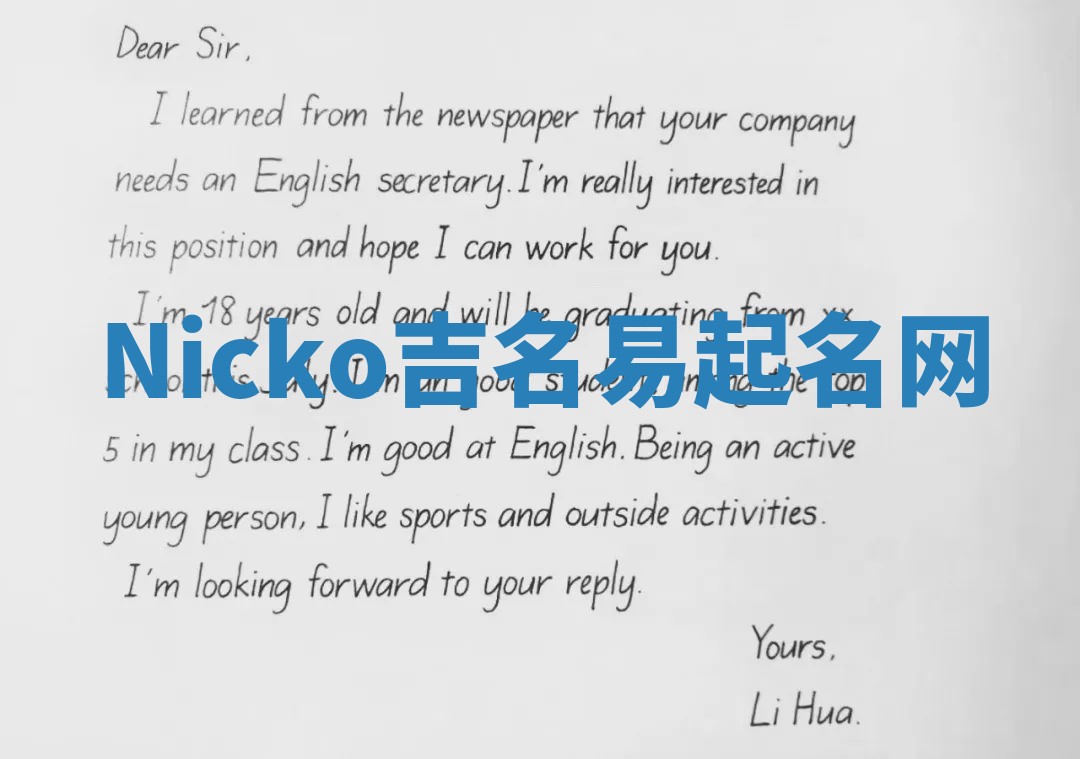 Dear Sir,
I learned from the newspaper that your company
needs an English secretary. I'm really interested in
this position and hope I can work for you.
I'm 18 years old and will be graduating from xx
Nicko吉名易起名网
school this July. I'm an good student among the top
5 in my class. I'm good at English. Being an active
young person, I like sports and outside activities.
I'm looking forward to your reply.
Yours,
Li Hua.